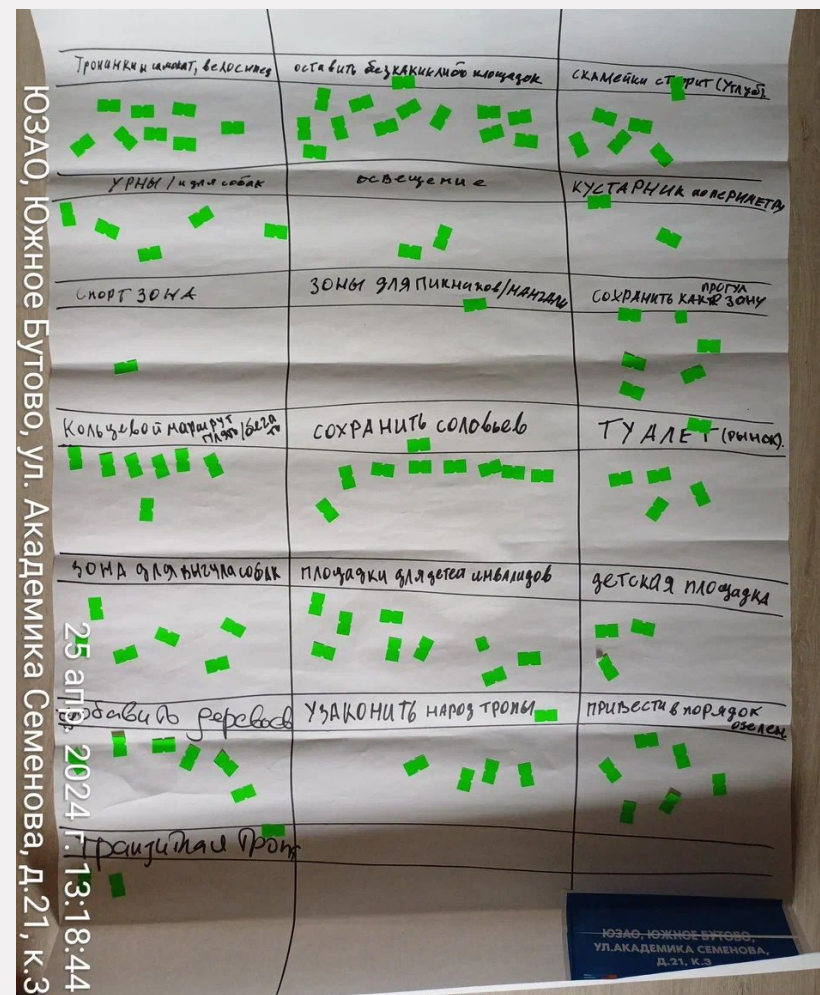 Тропинки и самокат, велосипед
оставить без каких либо площадок
СКАМЕЙКИ
УРНЫ / и для собак
освещение
КУСТАРНИК по ПЕРИМЕТРУ
СПОРТ ЗОНА
ЗОНЫ для Пикников/мангалы
СОХРАНИТЬ КАК ПРОГУЛ ЗОНУ
Кольцевой маршрут
СОХРАНИТЬ соловьев
ТУАЛЕТ (РЫНОК).
ЗОНА для выгула собак
площадки для детей инвалидов
детская площадка
добавить деревьев
УЗАКОНИТЬ НАРОД ТРОПЫ
ПРИВЕСТИ в порядок
озелен
Транзитная
ЮЗАО, Южное Бутово, ул. Академика Семенова, д.21, к.3
25 апр. 2024 г. 13:18:44
ЮЗАО, ЮЖНОЕ БУТОВО,
УЛ.АКАДЕМИКА СЕМЕНОВА,
Д.21, К.3